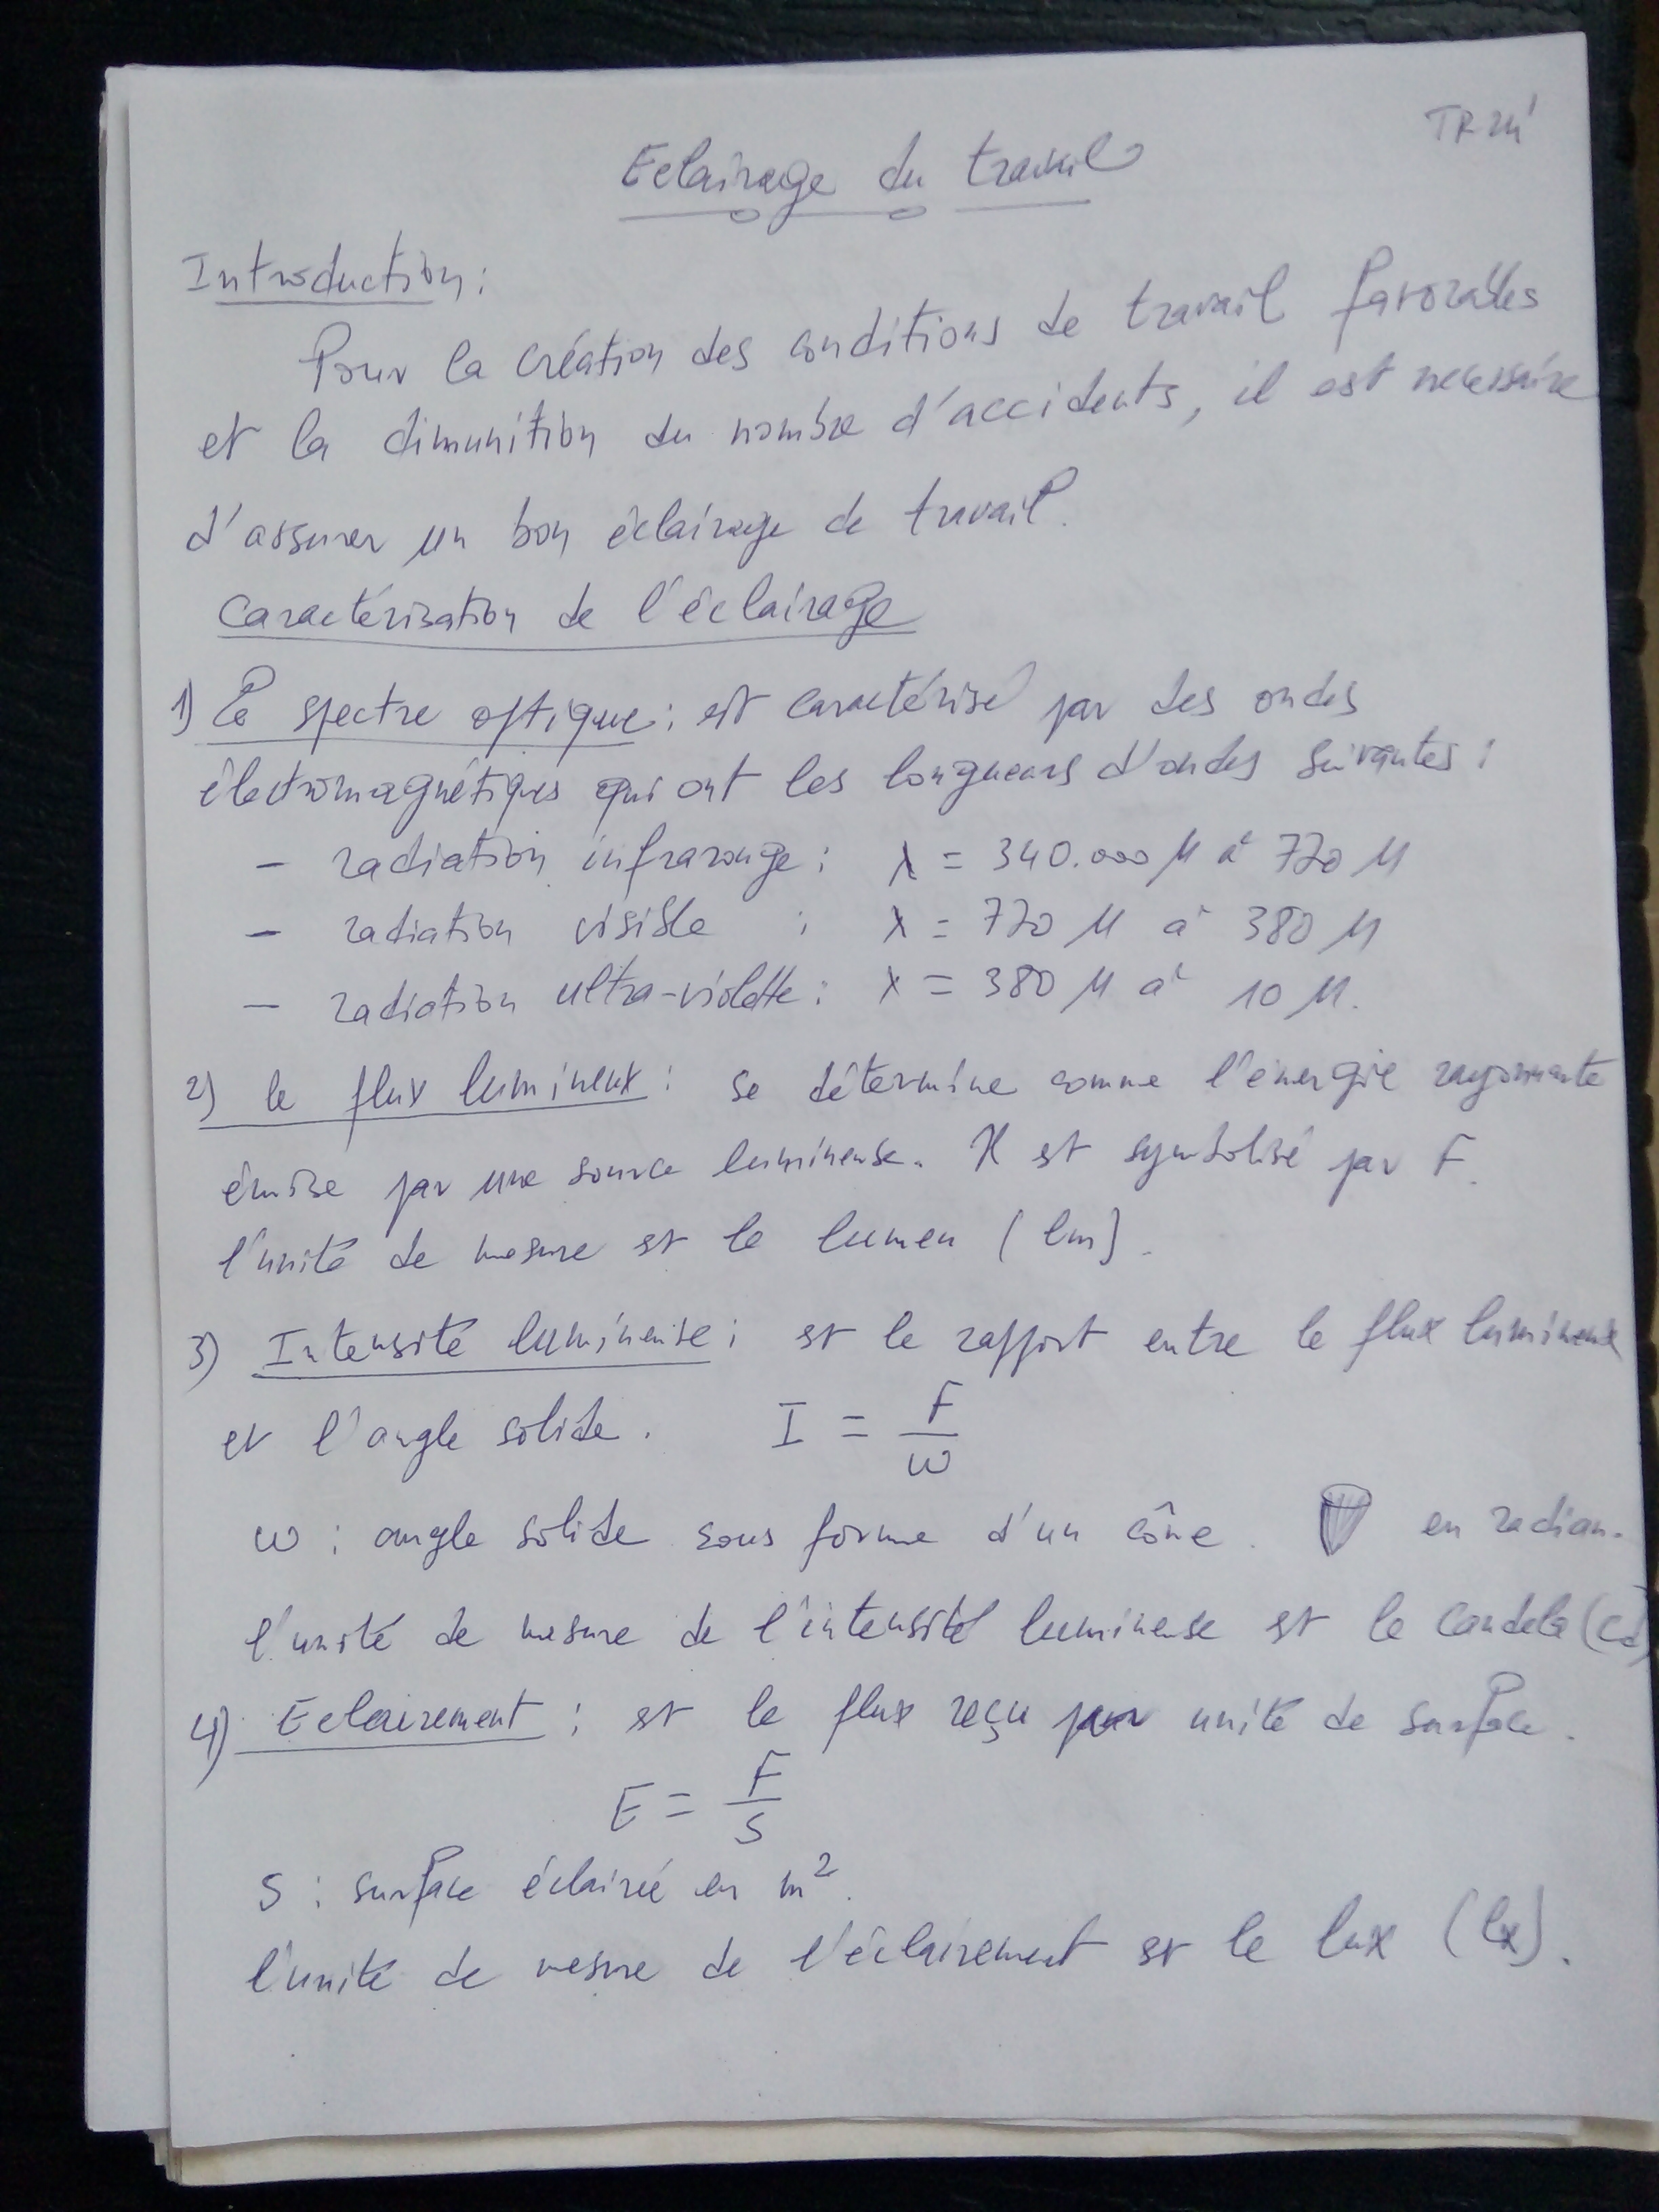 Eclairage du travail
Introduction:
Pour la création des conditions de travail favorables
et la dimunition du nombre d'accidents, il est necessaire
d'assurer un bon éclairage de travail.
Caractérisation de l'éclairage
1) Le spectre optique: est caractérisé par des ondes
électromagnétiques qui ont les longueurs d'ondes suivantes:
- radiation infrarouge: λ = 340.000 µ à 770 µ
- radiation visible : λ = 770 µ à 380 µ
- radiation ultra-violette: λ = 380 µ à 10 µ.
2) le flux lumineux: se détermine comme l'énergie rayonnante
émise par une source lumineuse. Il est symbolisé par F.
l'unité de mesure est le lumen (lm).
3) Intensité lumineuse: est le rapport entre le flux lumineux
et l'angle solide. I = F/ω
ω : angle solide sous forme d'un cône. en radian.
l'unité de mesure de l'intensité lumineuse est le candela (cd)
4) Eclairement: est le flux reçu par unité de surface.
E = F/S
S : surface éclairée en m².
l'unité de mesure de l'éclairement est le lux (lx).